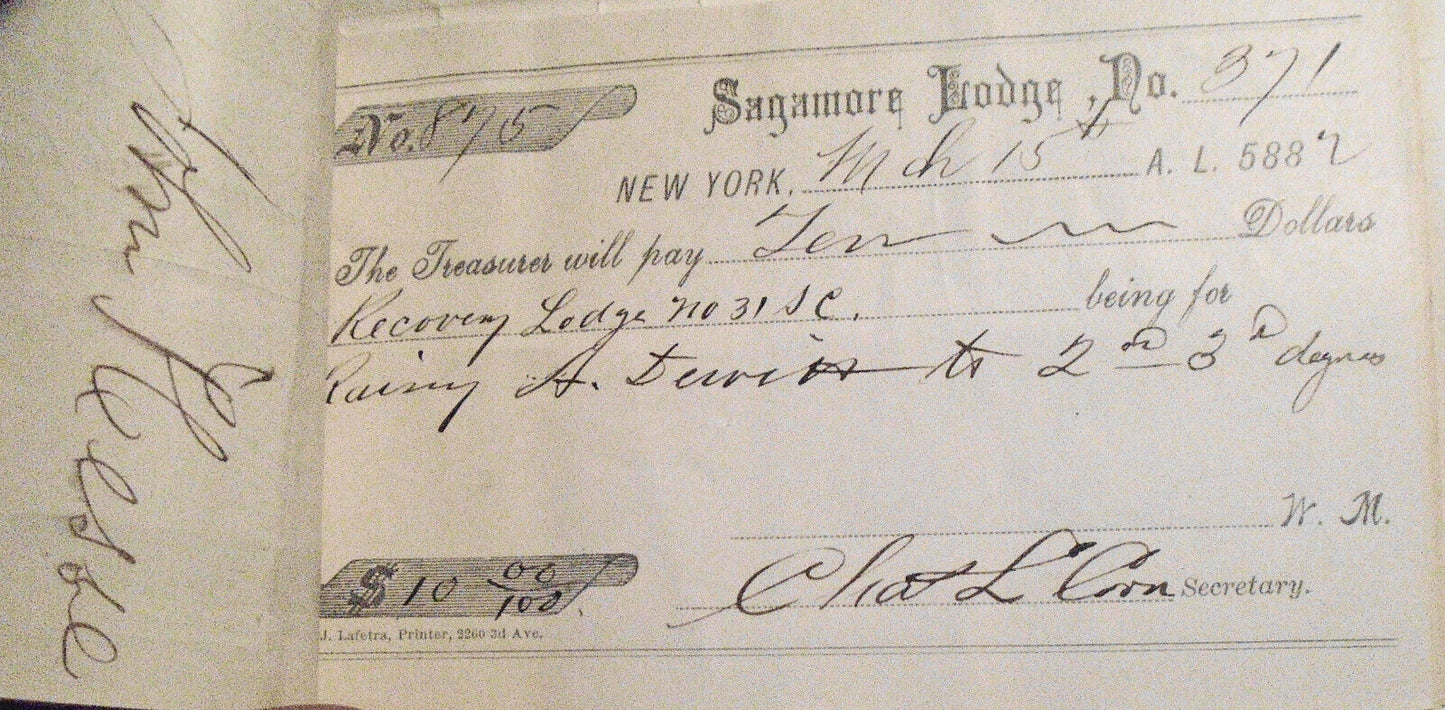 Sagamore Lodge, No. 371
No. 875
NEW YORK, Mch 15th A. L. 5882
The Treasurer will pay Ten Dollars
Recovery Lodge no 31 S C. being for
Raising A. to 2nd 3d degrees
W. M.
$ 10 00/100
Chas L Corn Secretary.
J. Lafetra, Printer, 2260 3d Ave.
Wm